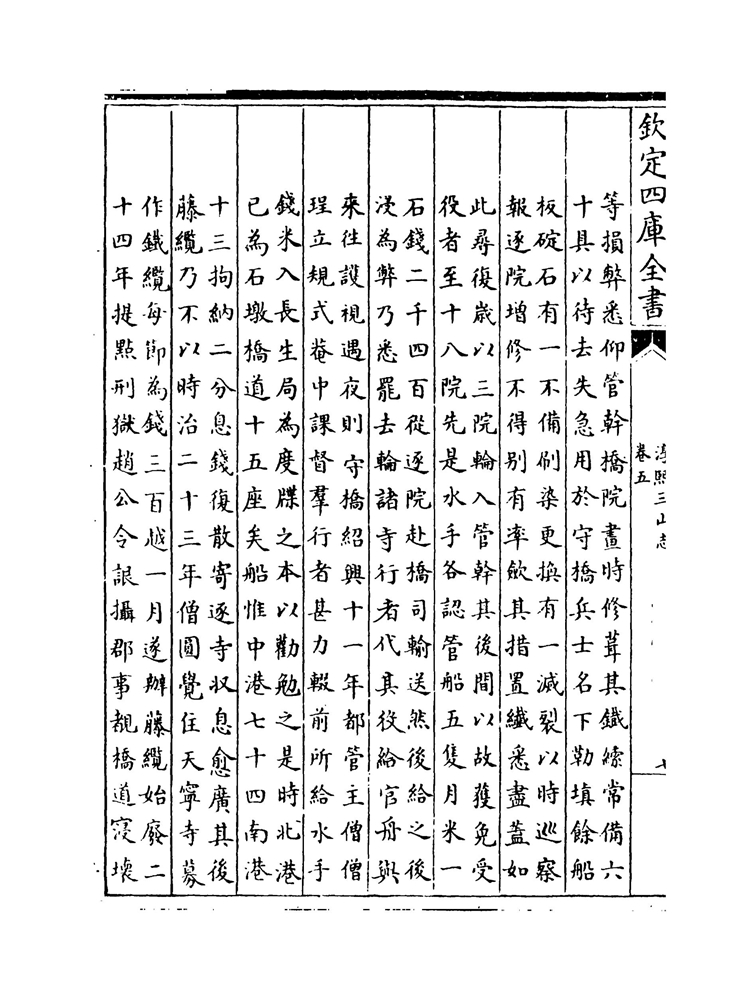 欽定四庫全書
淳熙三山志
卷五
等損弊悉仰管幹橋院畫時修葺其鐵縤常備六
十具以待去失急用於守橋兵士名下勒填餘船
板碇石有一不備刷染更換有一滅裂以時巡察
報逐院增修不得别有率歛其措置纎悉盡蓋如
此尋復嵗以三院輪入管幹其後間以故獲免受
役者至十八院先是水手各認管船五隻月米一
石錢二千四百從逐院赴橋司輸送然後給之後
浸為弊乃悉罷去輪諸寺行者代其役給官舟與
來徃護視遇夜則守橋紹興十一年都管主僧僧
珵立規式菴中課督羣行者甚力輟前所給水手
錢米入長生局為度牒之本以勸勉之是時北港
已為石墩橋道十五座矣船惟中港七十四南港
十三拘納二分息錢復散寄逐寺収息愈廣其後
藤纜乃不以時治二十三年僧圓覺住天寧寺募
作鐵纜每節為錢三百越一月遂辦藤纜始廢二
十四年提點刑獄趙公令詪攝郡事覩橋道寖壞